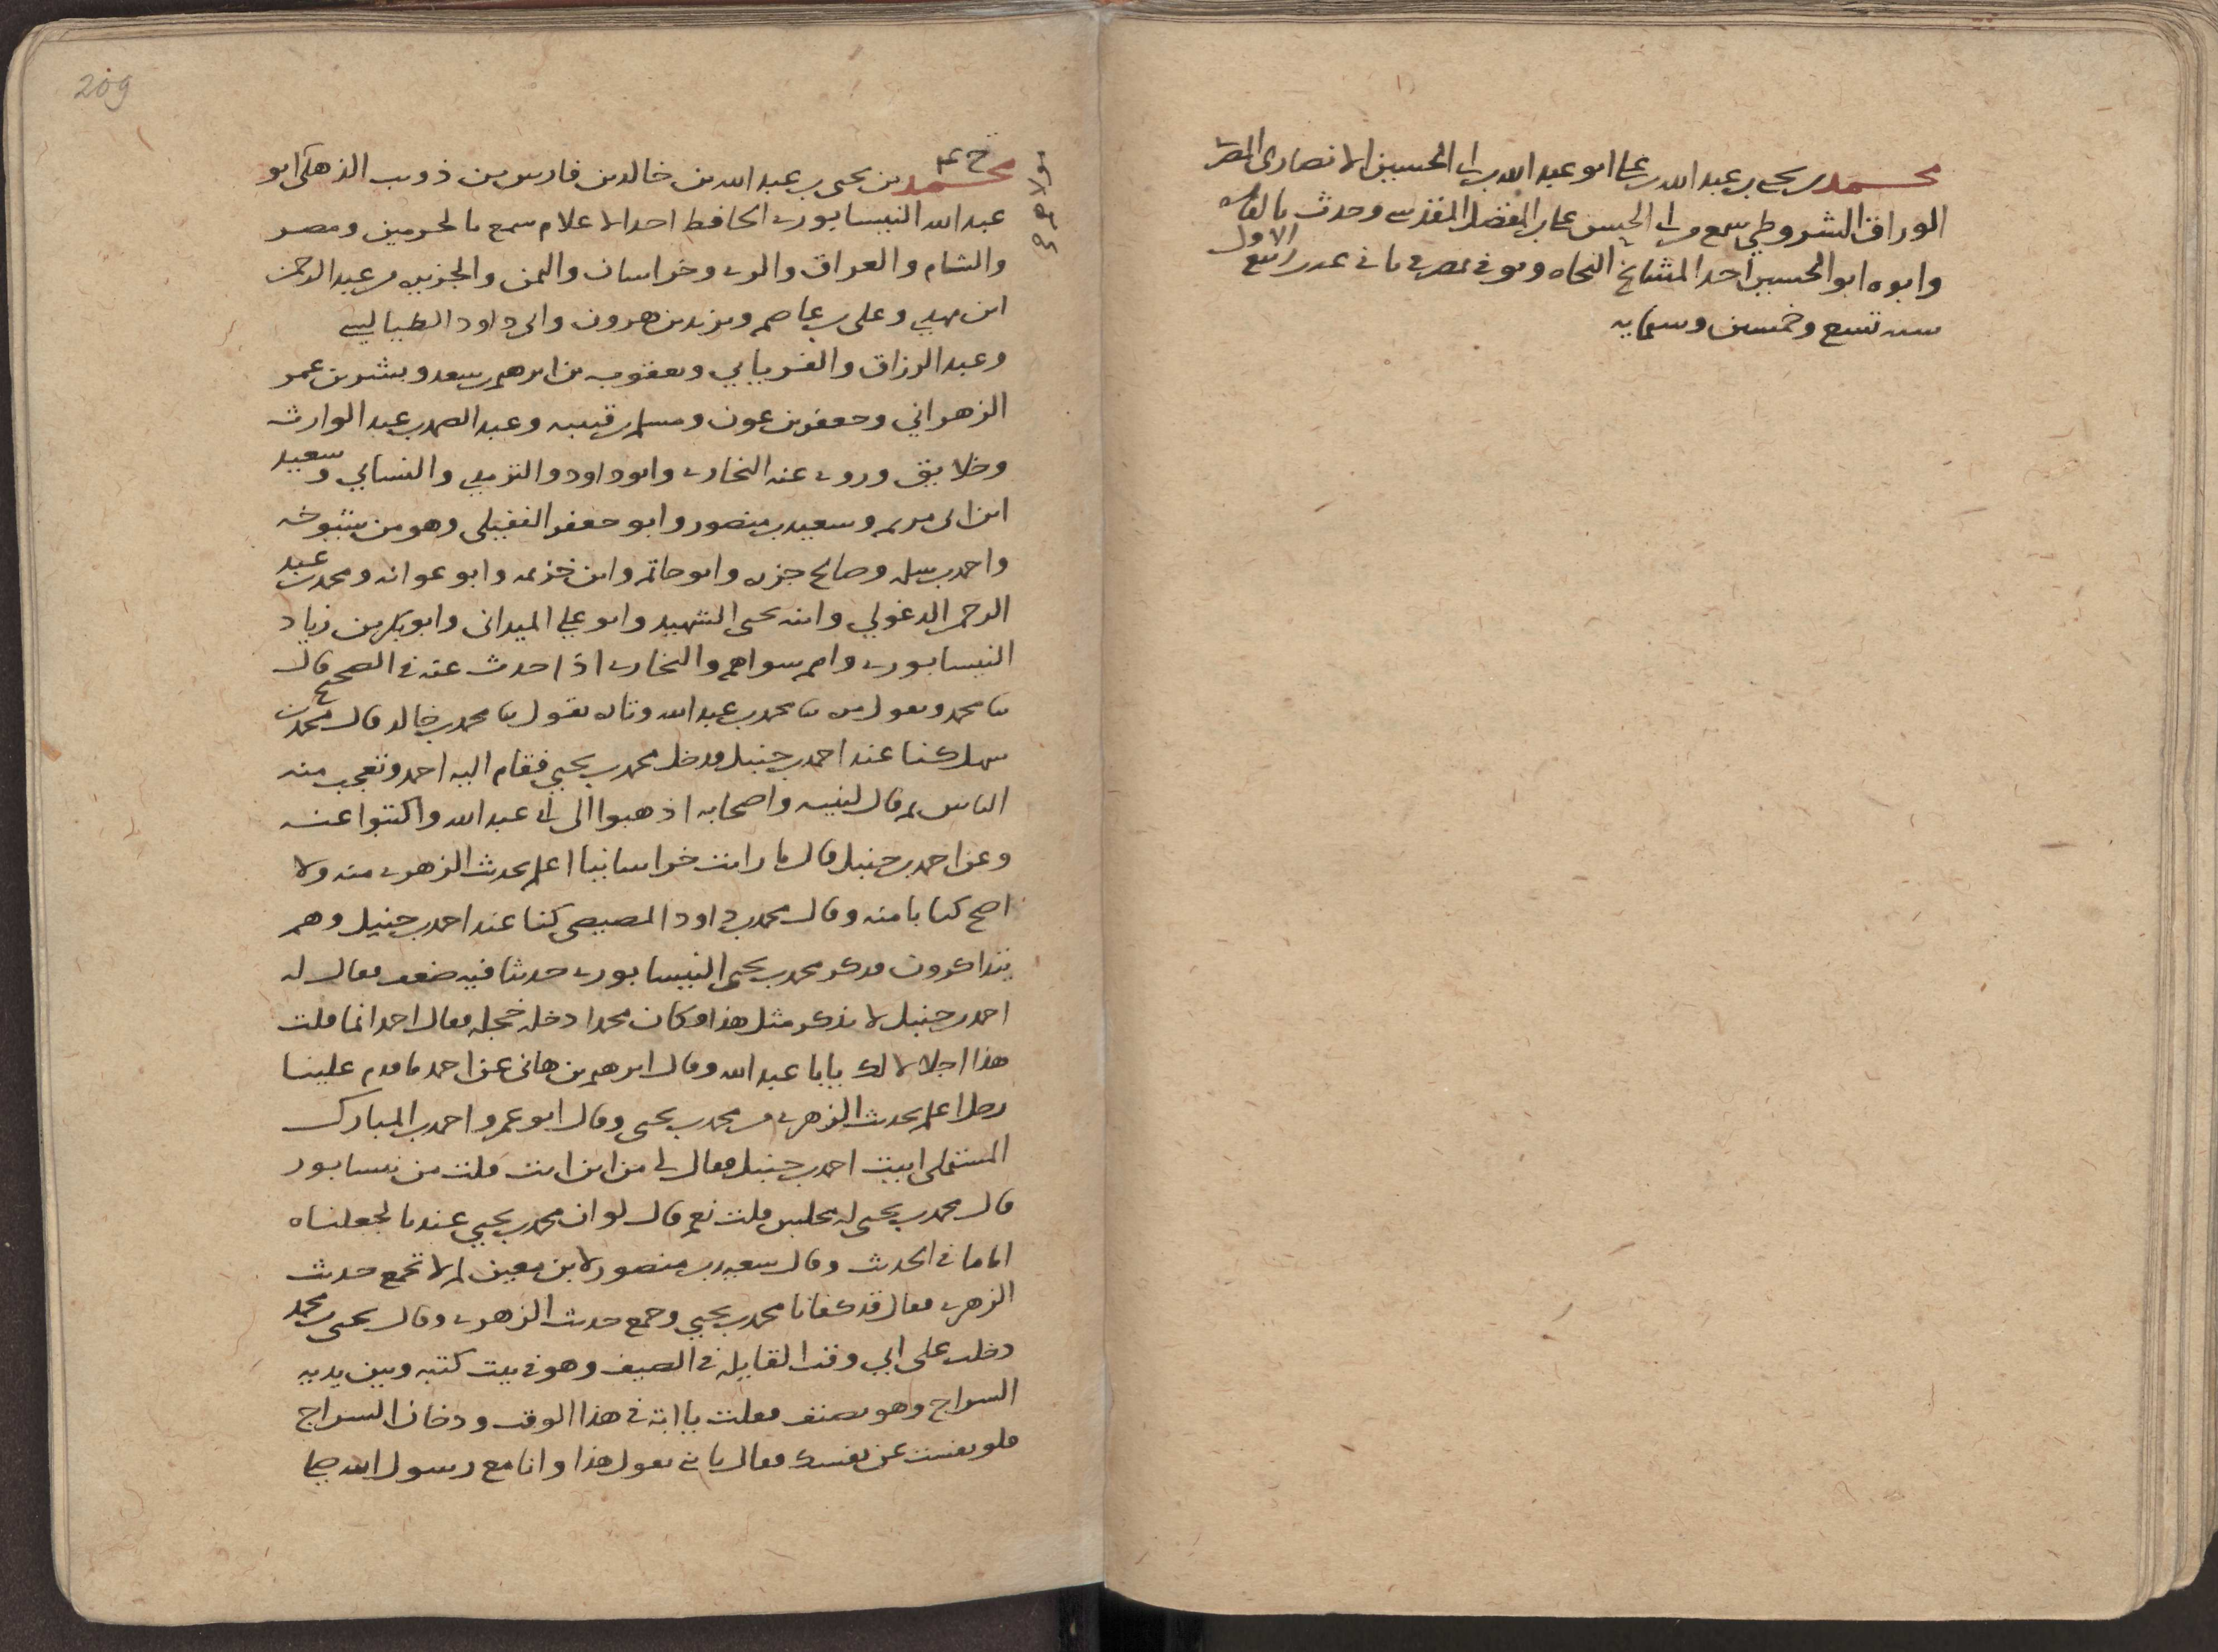 محمد بن يحيى بن عبد الله بن علي ابو عبد الله بن ابي الحسين الانصاري المصري
الوراق الشروطي سمع من ابي الحسن علي بن المفضل المقدسي وحدث بالقاهرة
وابوه ابو الحسين احد المشايخ النحاه وتوفي بمصر في ثاني عشر ربيع الاول
سنه تسع وخمسين وستمايه
209
خ عم
محمد بن يحيى بن عبد الله بن خالد بن فارس بن ذويب الذهلي ابو
عبد الله النيسابوري الحافظ احد الاعلام سمع بالحرمين ومصر
والشام والعراق والري وخراسان واليمن والجزيره من عبد الرحمن
ابن مهدي وعلي بن عاصم ويزيد بن هرون وابي داود الطيالسي
وعبد الرزاق والفريابي ويعقوب بن ابرهيم بن سعد وبشر بن عمر
الزهراني وجعفر بن عون ومسلم بن قتيبه وعبد الصمد بن عبد الوارث
وخلايق وروى عنه البخاري وابو داود والترمذي والنسايي وسعيد
ابن ابي مريم وسعيد بن منصور وابو جعفر النفيلي وهو من شيوخه
واحمد بن سلمه وصالح جزره وابو حاتم وابن خزيمه وابو عوانه ومحمد بن عبد
الرحمن الدغولي وابنه يحيى الشهيد وابو علي الميداني وابو بكر بن زياد
النيسابوري وامم سواهم والبخاري اذا حدث عنه في الصحيح قال
ثنا محمد ويقول مره ثنا محمد بن عبد الله وتاره يقول ثنا محمد بن خالد قال محمد بن
سهل كنا عند احمد بن حنبل فدخل محمد بن يحيى فقام اليه احمد وتعجب منه
الناس ثم قال لبنيه واصحابه اذهبوا الى ابي عبد الله واكتبوا عنه
وعن احمد بن حنبل قال ما رايت خراسانيا اعلم بحديث الزهري منه ولا
اصح كتابا منه وقال محمد بن داود المصيصي كنا عند احمد بن حنبل وهم
يتذاكرون فذكر محمد بن يحيى النيسابوري حديثا فيه ضعف فقال له
احمد بن حنبل لا تذكر مثل هذا فكان محمدا دخله خجله فقال احمد انما قلت
هذا اجلالا لك يابا عبد الله وقال ابرهيم بن هاني عن احمد ما قدم علينا
رجل اعلم بحديث الزهري من محمد بن يحيى وقال ابو عمرو احمد بن المبارك
المستملي اتيت احمد بن حنبل فقال لي من اين انت قلت من نيسابور
قال محمد بن يحيى له مجلس قلت نعم قال لو ان محمد بن يحيى عندنا لجعلناه
اماما في الحديث وقال سعيد بن منصور لابن معين لم لا تجمع حديث
الزهري فقال قد كفانا محمد بن يحيى وجمع حديث الزهري وقال يحيى بن محمد
دخلت على ابي وقت القايله في الصيف وهو في بيت كتبه وبين يديه
السراج وهو يصنف فقلت يا ابة في هذا الوقت ودخان السراج
فلو نفست عن نفسك فقال يا بني تقول هذا وانا مع رسول الله صلى